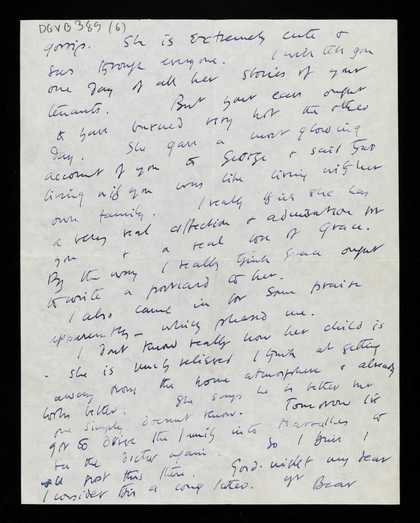 DGVB 389 (6)
gossip. She is extremely cute &
sees through everyone. I will tell you
one day of all her stories of your
tenants. But your ears ought
to have burned very hot the other
day. She gave a most glowing
account of you to George & said that
living with you was like living with her
own family. I really think she has
a very real affection & admiration for
you & a real love of Grace.
By the way I really think Grace ought
to write a postcard to her.
I also came in for some praise
apparently – which pleased me.
I don't know really how her child is
- she is much relieved I think at getting
away from the home atmosphere & already
looks better. She says he is better
one simply doesn't know. Tomorrow
got to drive the family into Marseilles to
see the doctor again. So I think I
will post this there. Good-night my dear
I consider this a long letter. yr Bear